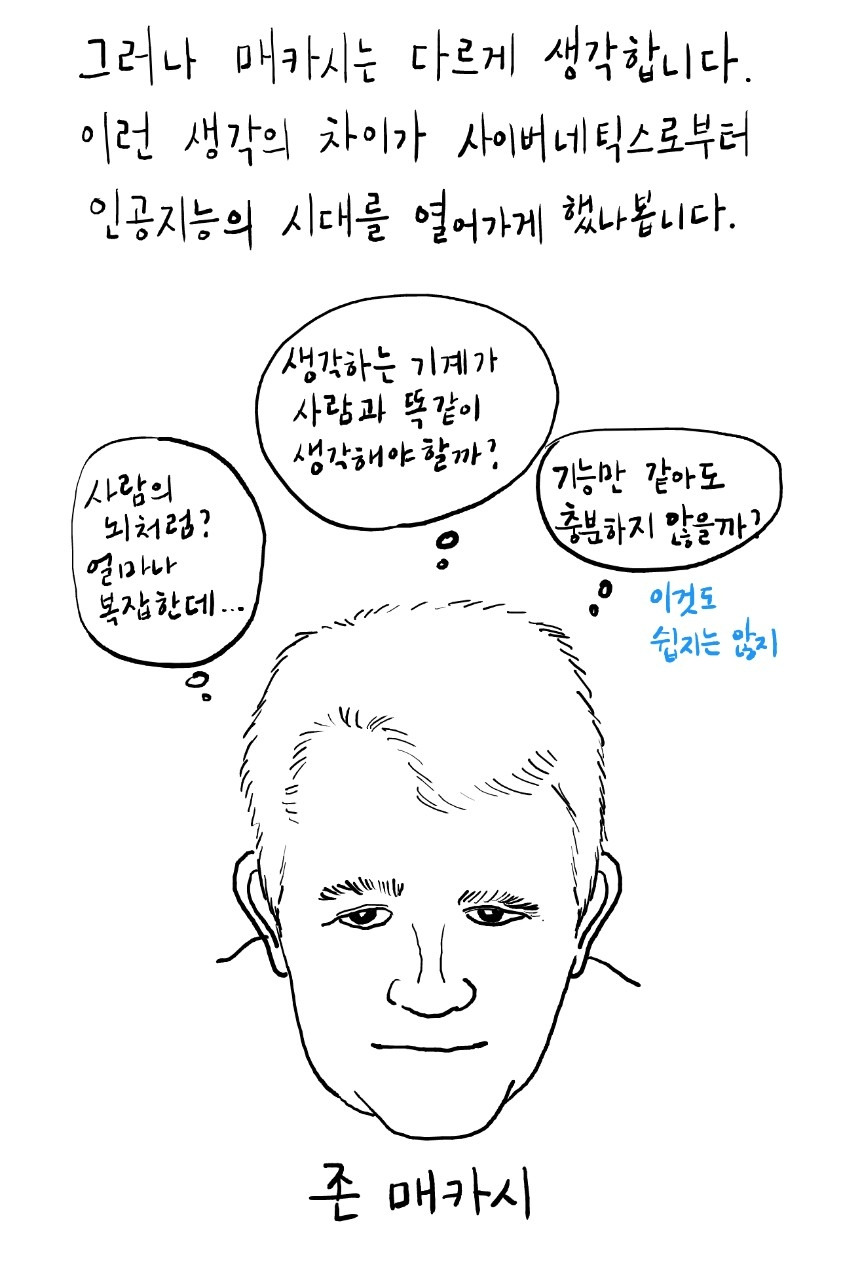 그러나 매카시는 다르게 생각합니다.
이런 생각의 차이가 사이버네틱스로부터
인공지능의 시대를 열어가게 했나봅니다.
사람의
뇌처럼?
얼마나
복잡한데...
생각하는 기계가
사람과 똑같이
생각해야 할까?
기능만 같아도
충분하지 않을까?
이것도
쉽지는 않지
존 매카시